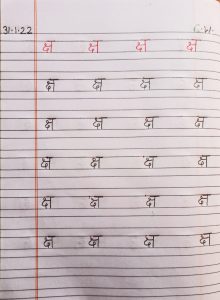 31.1.22 C.W.
क्ष क्ष क्ष क्ष
क्ष क्ष क्ष क्ष
क्ष क्ष क्ष क्ष
क्ष क्ष क्ष क्ष
क्ष क्ष क्ष क्ष
क्ष क्ष क्ष क्ष